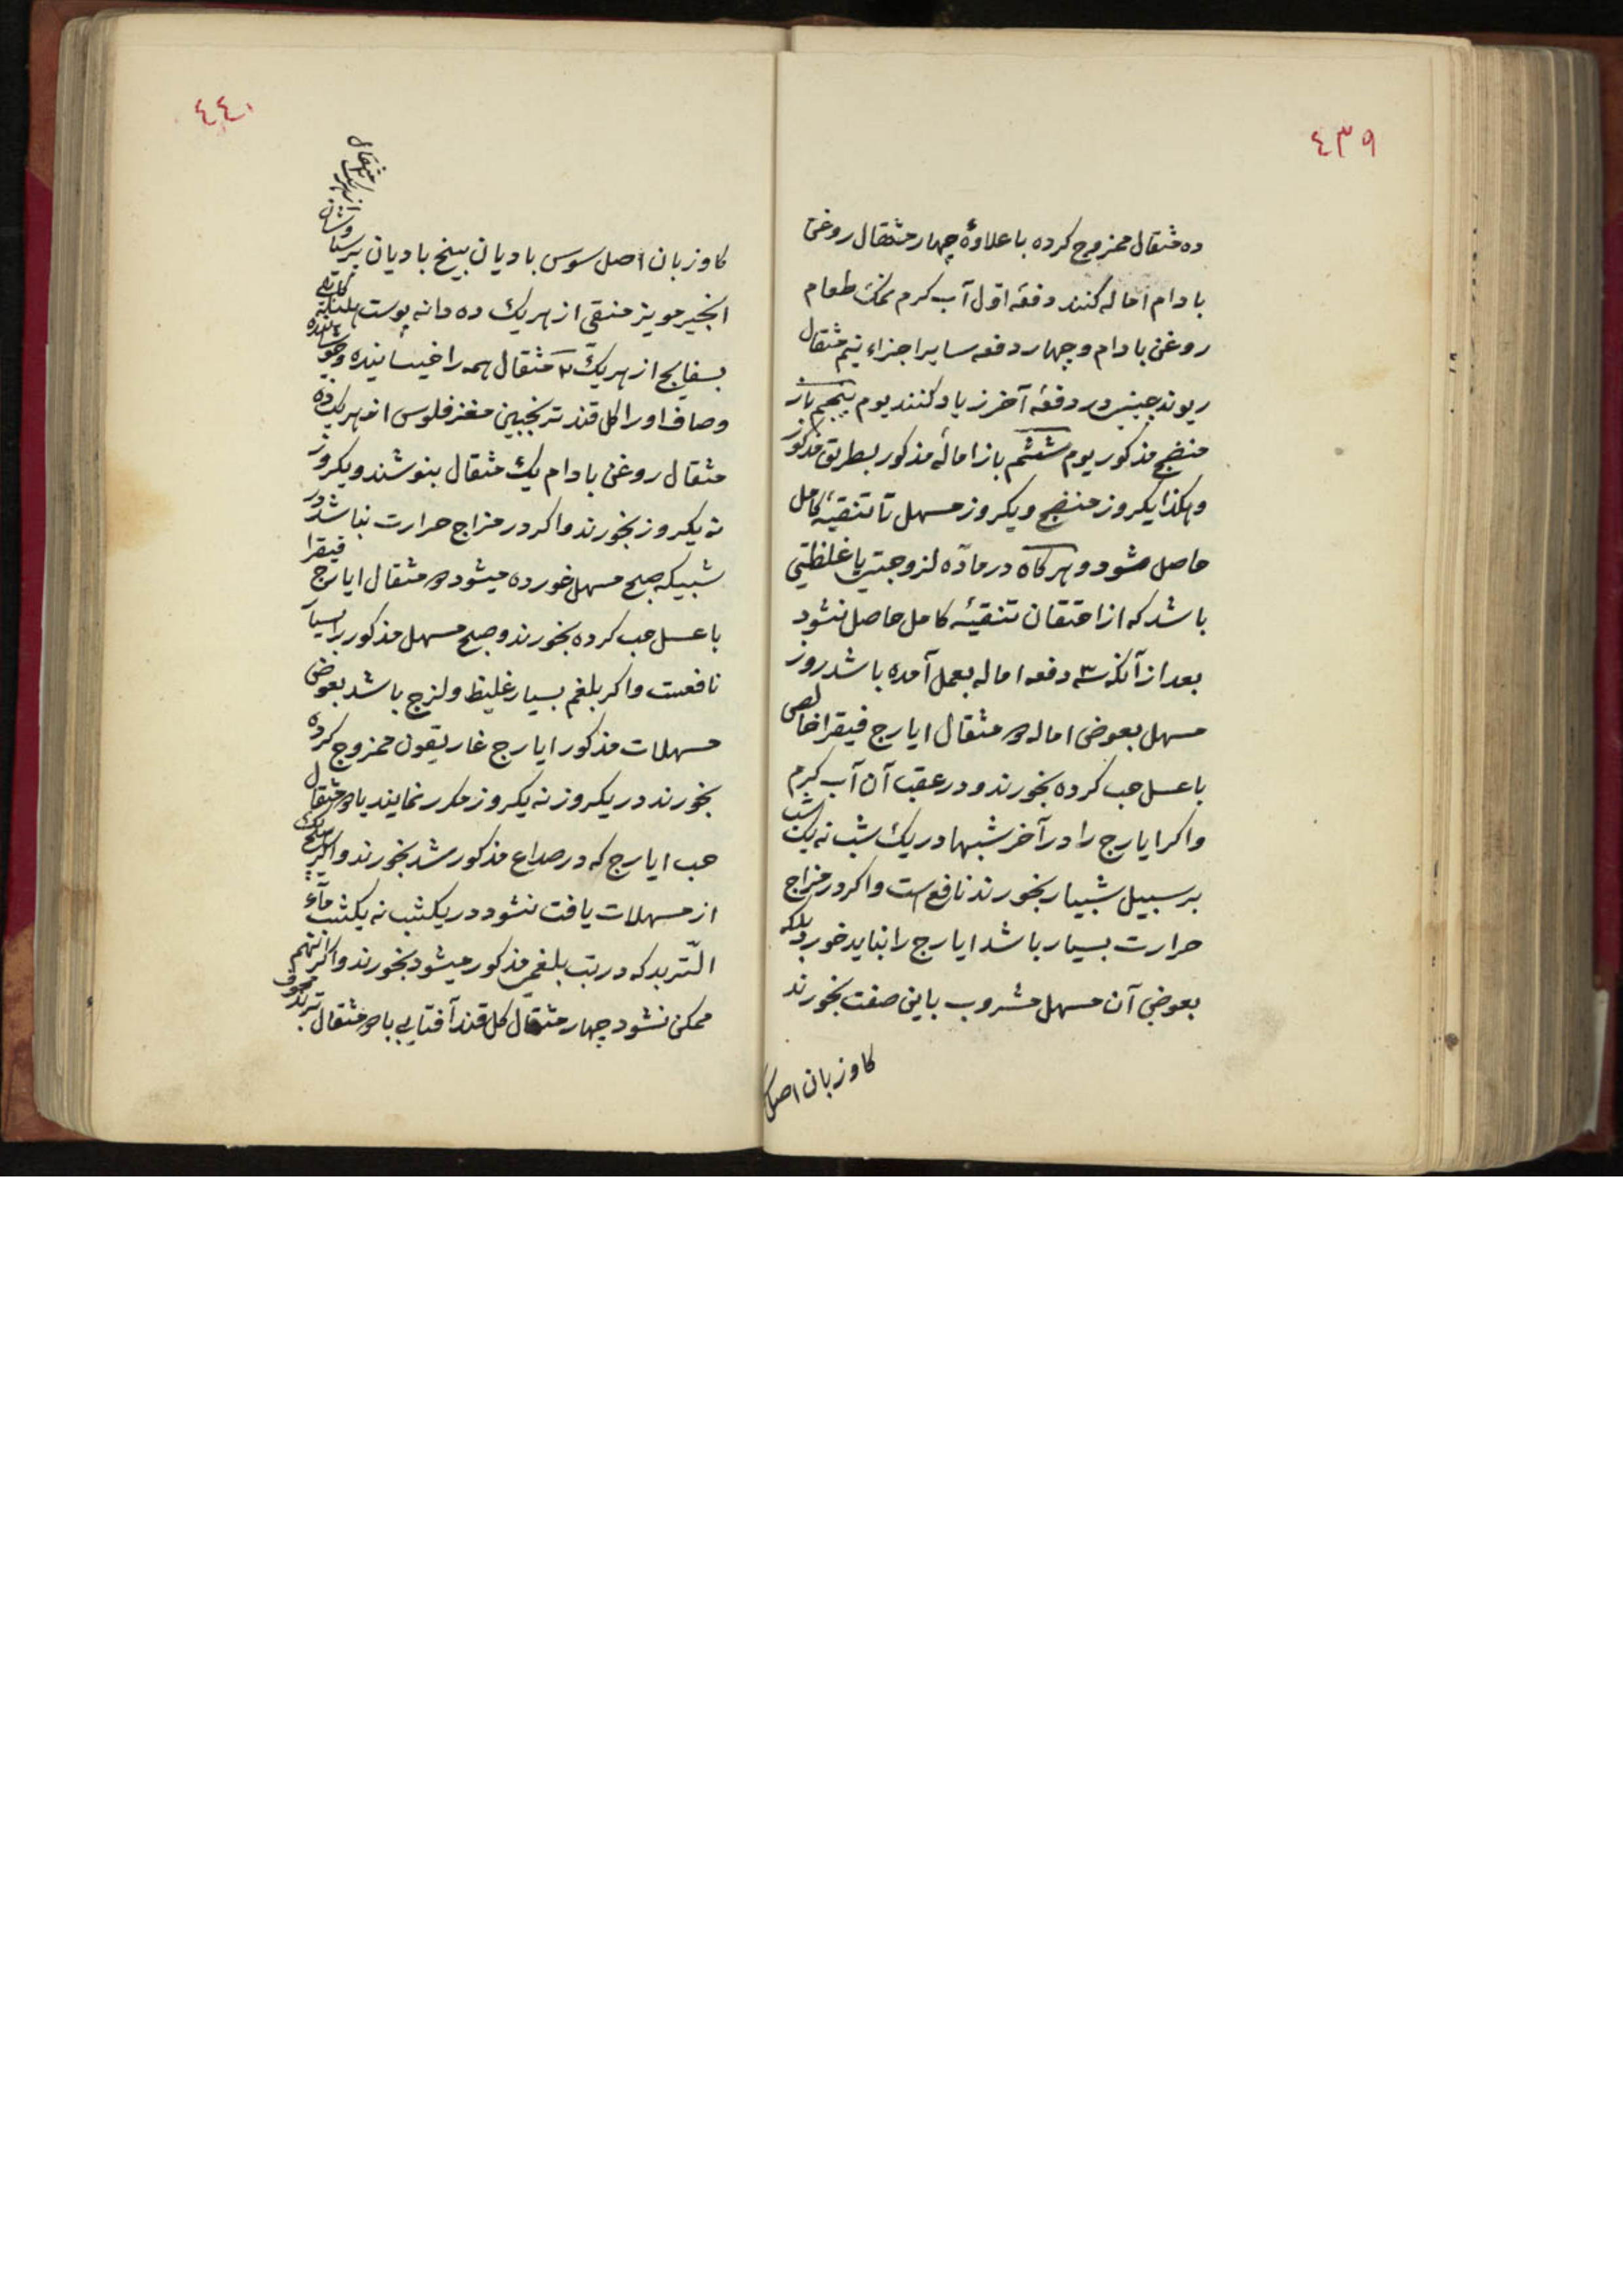 ٤٣٩
ده مثقال ممزوج کرده با علاوهٔ چهار مثقال روغن
بادام اماله کنند دفعهٔ اول آب کرم نمک طعام
روغن بادام و چهار دفعه سایر اجزاء نیم مثقال
ریوند چینی در دفعهٔ آخر زیاد کنند یوم پنجم باز
منضج مذکور یوم ششم باز امالهٔ مذکور بطریق مذکور
و هکذا یکروز منضج و یکروز مسهل تا تنقیهٔ کامل
حاصل شود و هرکاه در مادّه لزوجتی یا غلظتی
باشد که از احتقان تنقیهٔ کامل حاصل نشود
بعد از آنکه سه دفعه اماله بعمل آمده باشد روز
مسهل بعوض اماله مثقال ایارج فیقرا خالص
با عسل حب کرده بخورند و در عقب آن آب کرم
واکر ایارج را در آخر شبها در یک شب نه یک شب
بر سبیل شبیار بخورند نافع است واکر در مزاج
حرارت بسیار باشد ایارج را نباید خورد بلکه
بعوض آن مسهل مشروب باین صفت بخورند
کاوزبان اصل
٤٤٠
کاوزبان اصل سوس بادیان بیخ بادیان پرسیاوشان از هریک مثقال
انجیر مویز منقی از هریک ده دانه پوست هلیله کابلی
بسفایج از هریک ۲ مثقال همه را خیسانیده و جوشانیده
و صاف او را کل قند ترنجبین مغز فلوس از هریک ده
مثقال روغن بادام یک مثقال بنوشند و یکروز
نه یکروز بخورند واکر در مزاج حرارت نباشد در
شبیکه صبح مسهل خورده میشود مثقال ایارج فیقرا
با عسل حب کرده بخورند و صبح مسهل مذکور بسیار
نافعست واکر بلغم بسیار غلیظ و لزج باشد بعوض
مسهلات مذکور ایارج غاریقون ممزوج کرده
بخورند در یکروز نه یکروز مکرر نمایند یا مثقال
حب ایارج که در صداع مذکور شد بخورند واکر هیچ یک
از مسهلات یافت نشود در یکشب نه یکشب ماء
التّربد که در تب بلغمی مذکور میشود بخورند واکر انهم
ممکن نشود چهار مثقال کل قند آفتابی با مثقال تربد مجوف